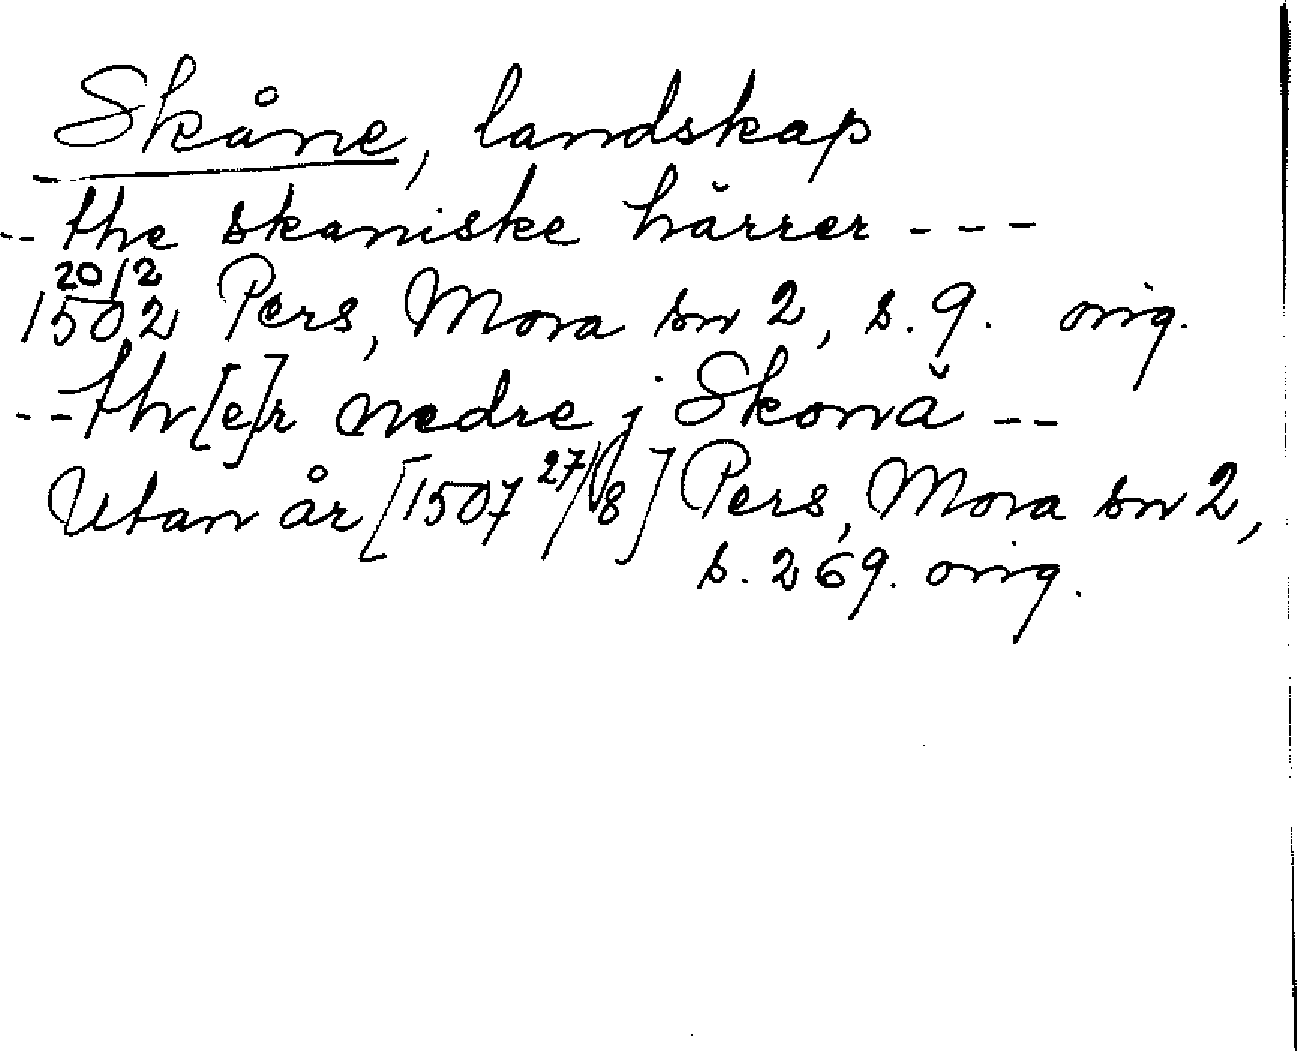 Skåne, landskap
-- the skaniske härrer ---
20/2
1502 Pers, Mora sn 2, s. 9. orig.
-- th[e]r nedre j Skonä --
Utan år [1507 27/8] Pers, Mora sn 2,
s. 269. orig.